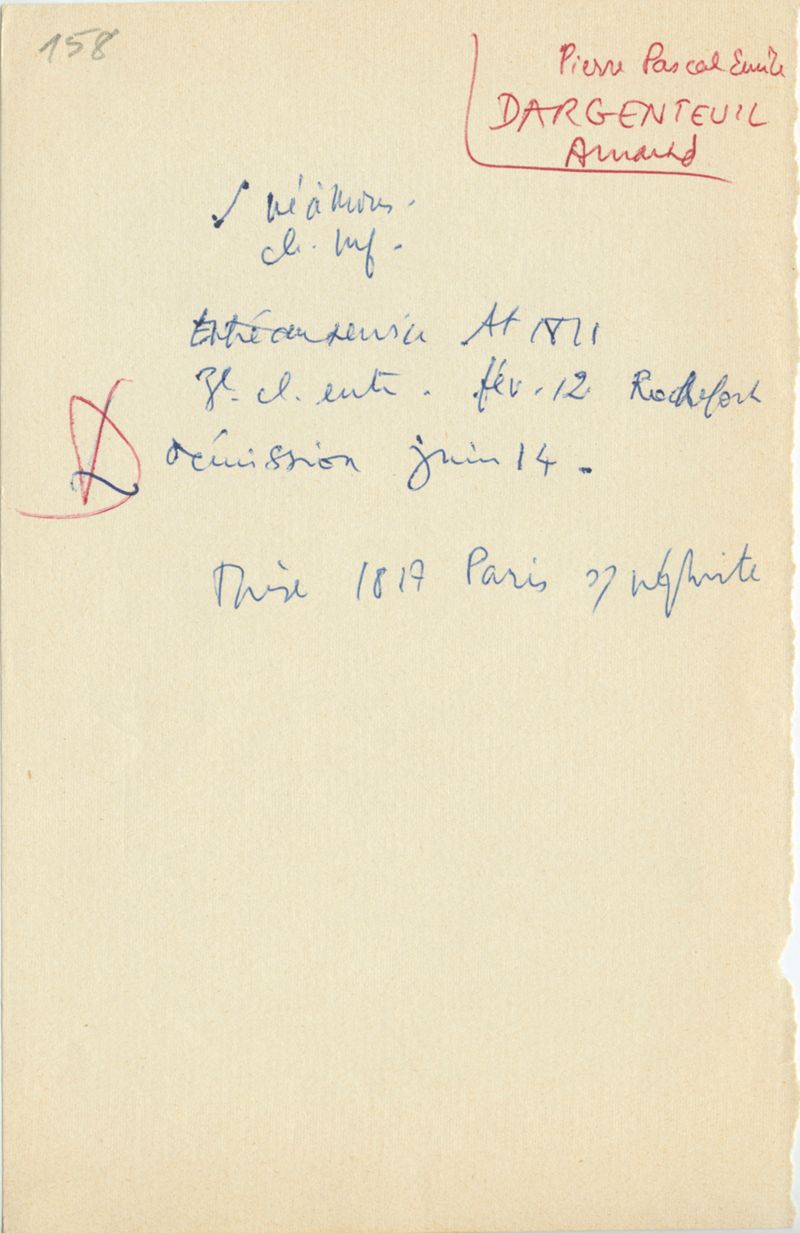 158
Pierre Pascal Emile
DARGENTEUIL
Armand
né à Mons.
ch. inf.
Entré au service At 1811
3e. cl. entr. fév. 12 Rochefort
démission juin 14.
Thèse 1817 Paris s/ néphrite